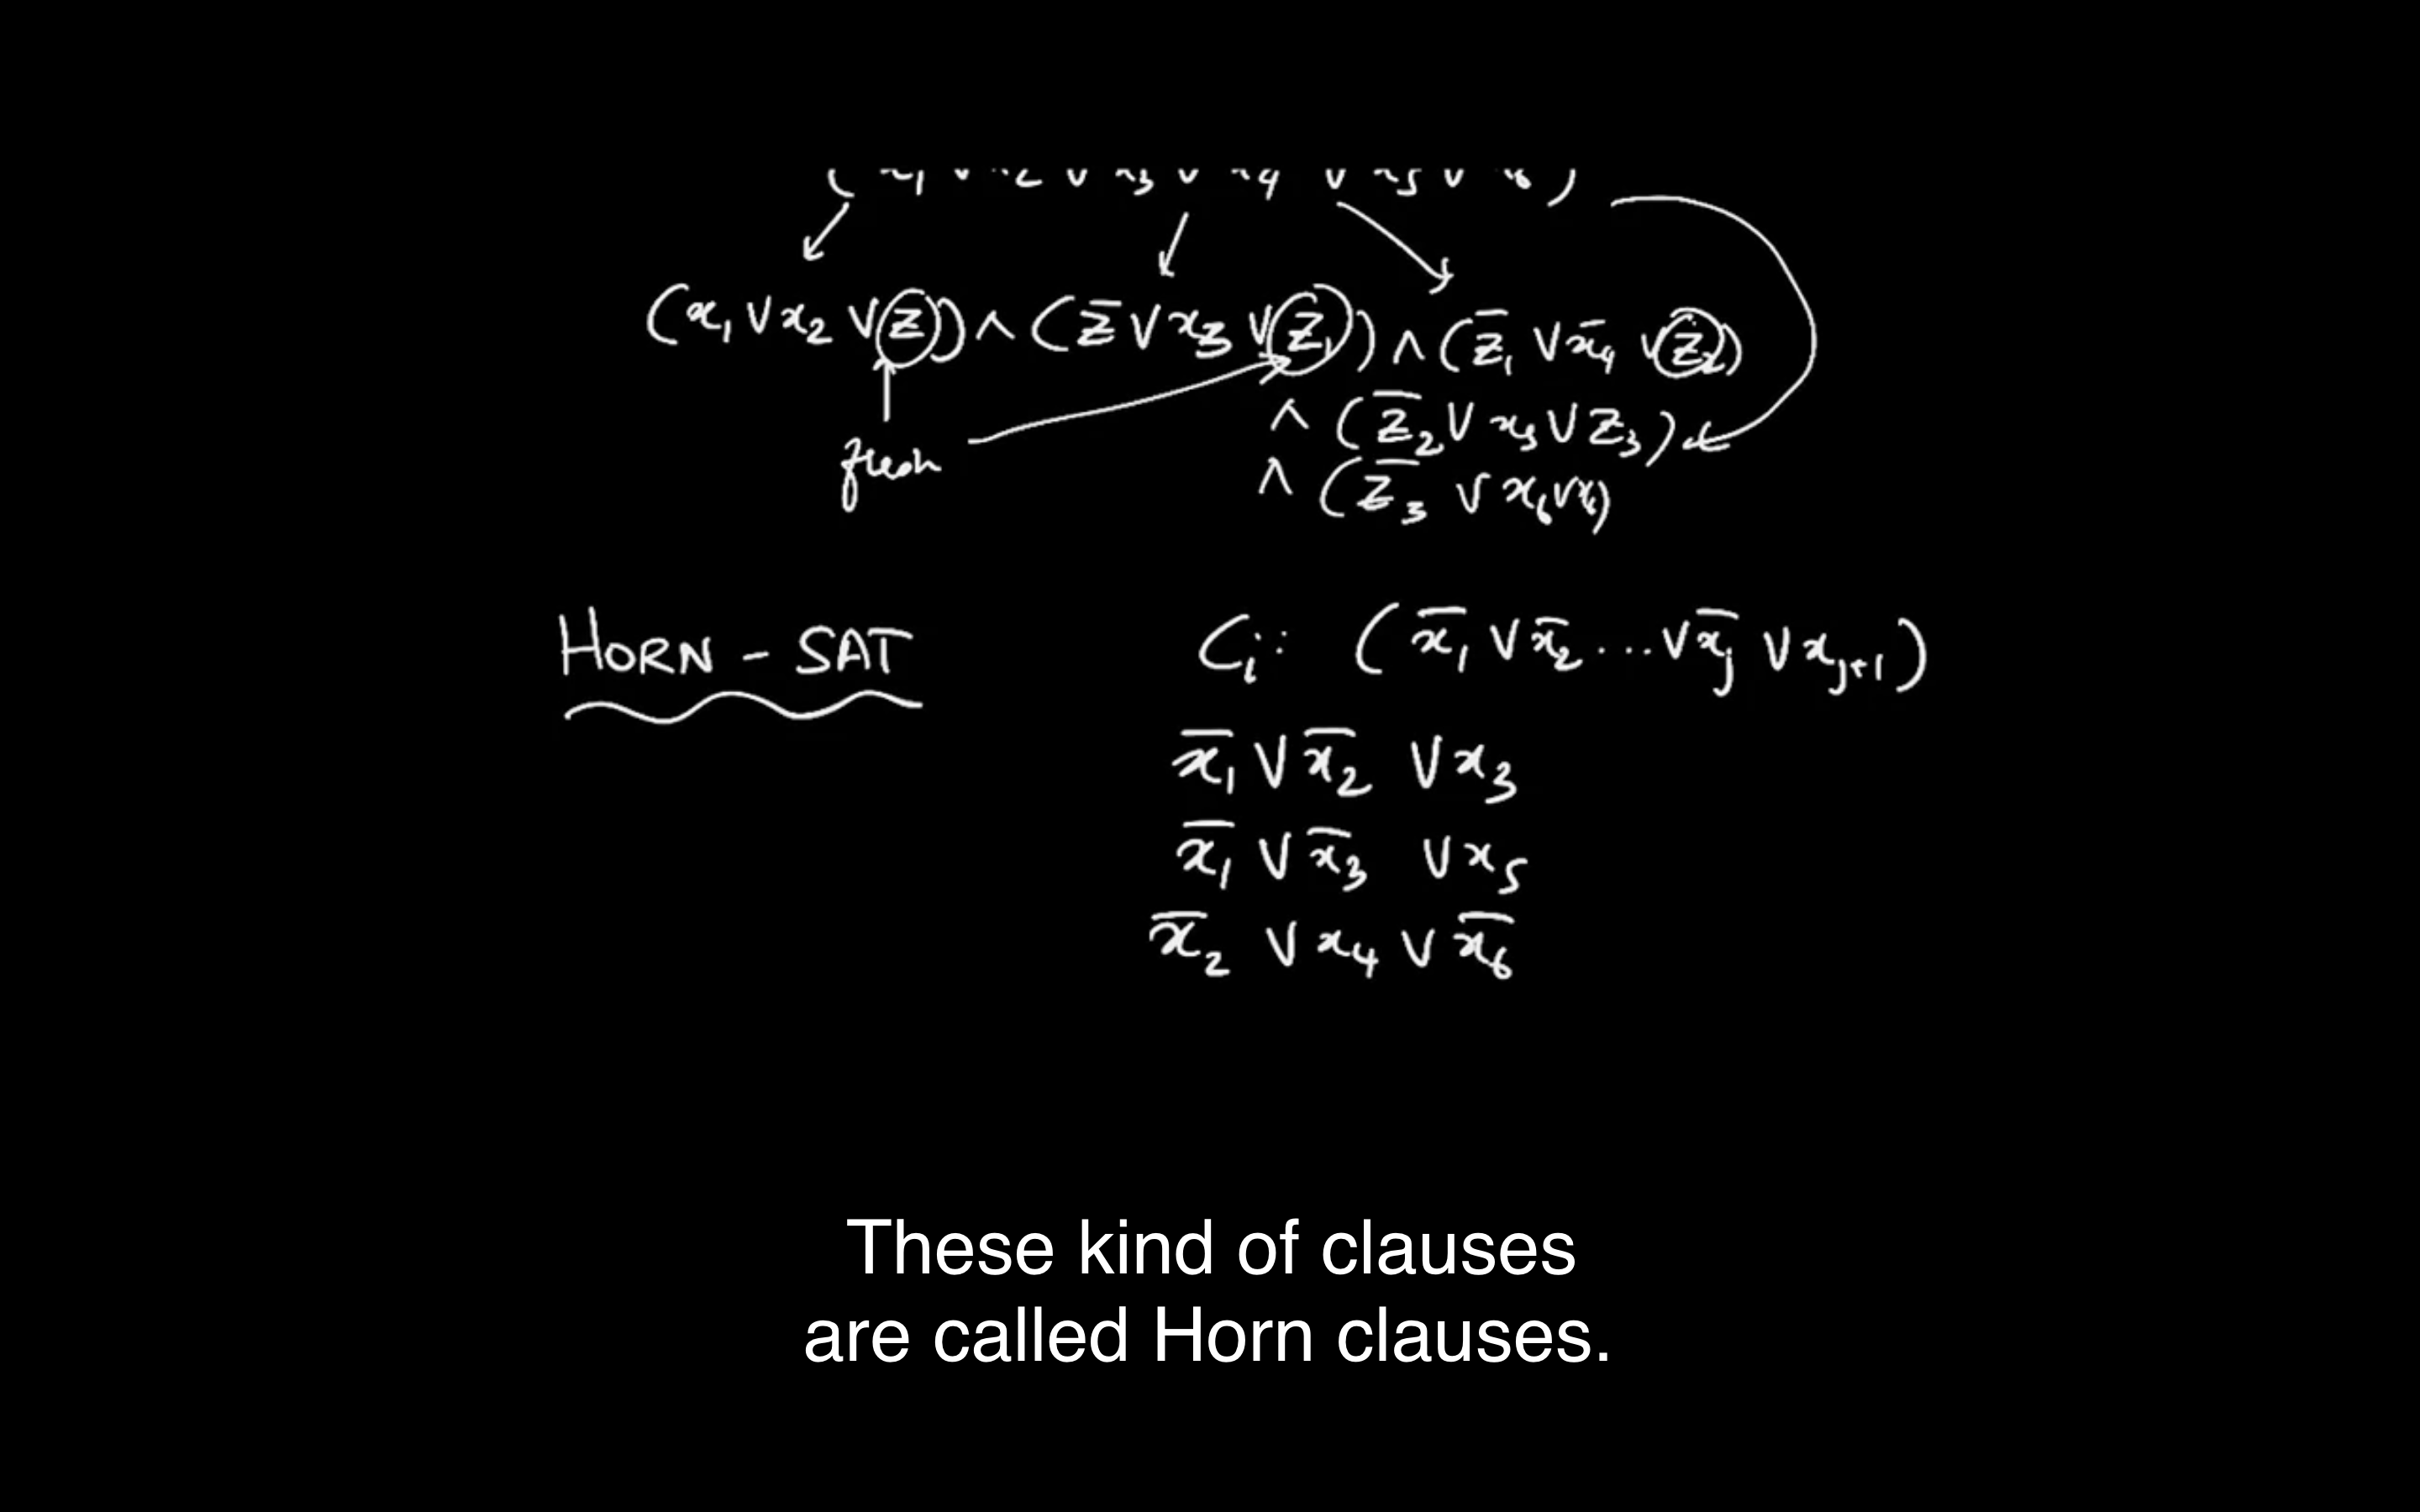 (x₁ ∨ x₂ ∨ z) ∧ (z̅ ∨ x₃ ∨ z₁) ∧ (z̅₁ ∨ x̅₄ ∨ z₂)
∧ (z̅₂ ∨ x₅ ∨ z₃)
fresh
∧ (z̅₃ ∨ x₆ ∨ x₆)
HORN - SAT
Cᵢ: (x̅₁ ∨ x̅₂ ... ∨ x̅ⱼ ∨ xⱼ₊₁)
x̅₁ ∨ x̅₂ ∨ x₃
x̅₁ ∨ x̅₃ ∨ x₅
x̅₂ ∨ x₄ ∨ x̅₆
These kind of clauses
are called Horn clauses.